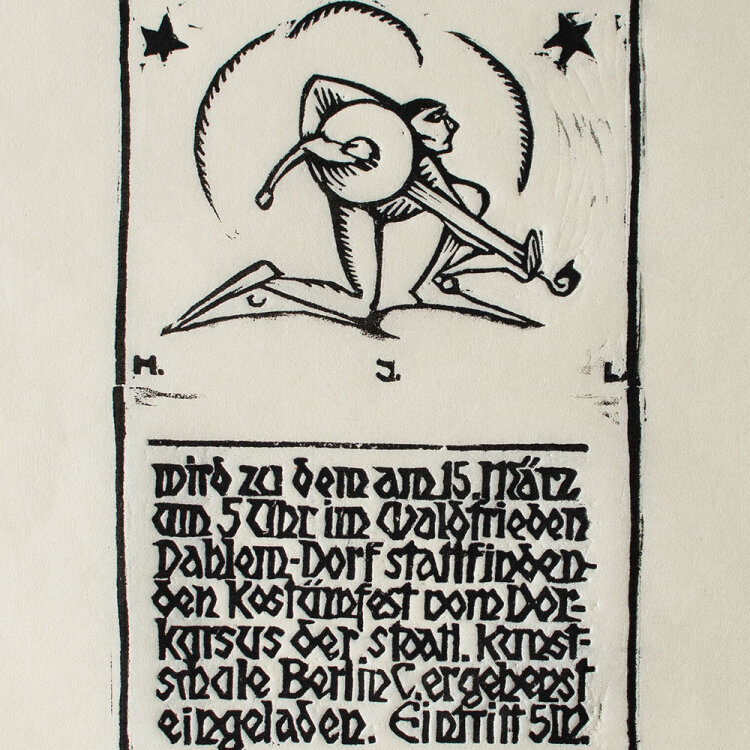 H. J. L.
wird zu dem am 15. März
um 5 Uhr im Waldfrieden
Dahlem-Dorf stattfinden-
den Kostümfest vom Vor-
kursus der staatl. Kunst-
schule Berlin C. ergebenst
eingeladen. Eintritt 5 M.